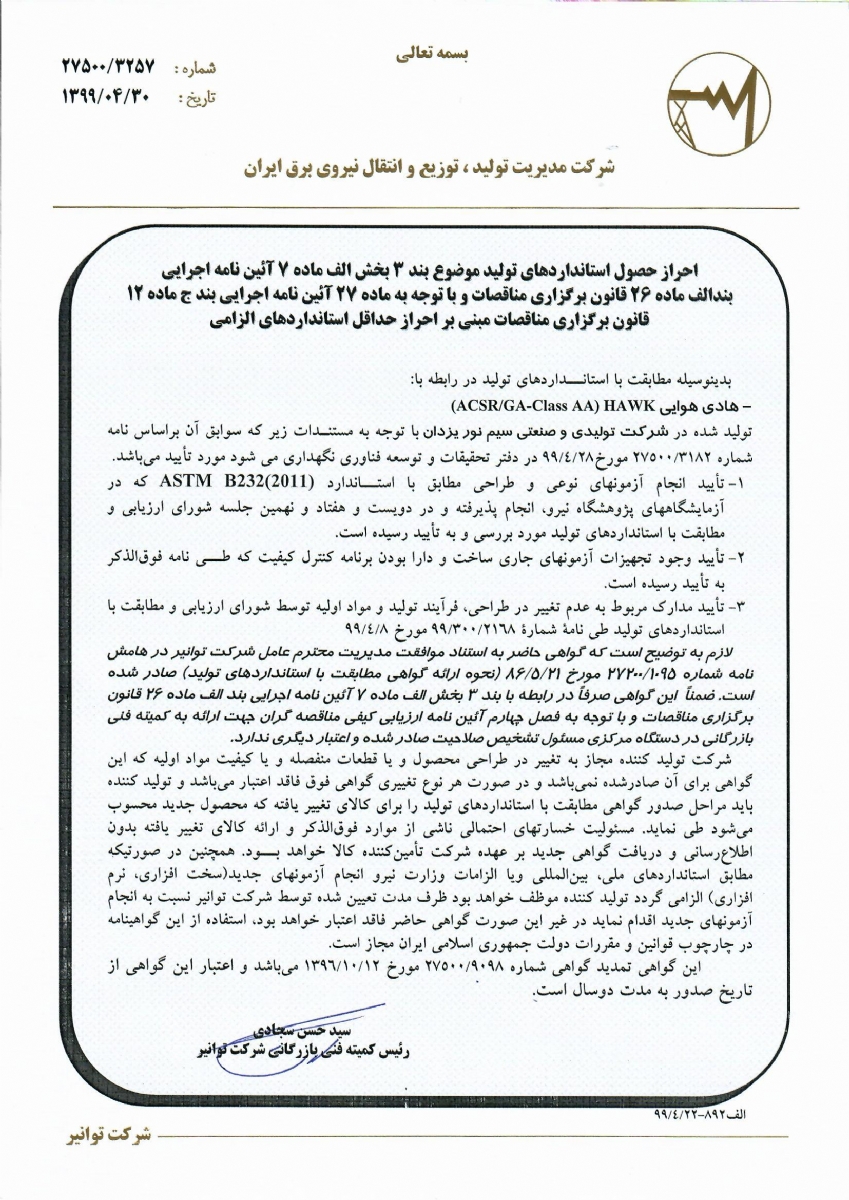 بسمه تعالی
شماره : ۲۷۵۰۰/۳۲۵۷
تاریخ : ۱۳۹۹/۰۴/۳۰
شرکت مدیریت تولید ، توزیع و انتقال نیروی برق ایران
احراز حصول استانداردهای تولید موضوع بند ۳ بخش الف ماده ۷ آئین نامه اجرایی
بندالف ماده ۲۶ قانون برگزاری مناقصات و با توجه به ماده ۲۷ آئین نامه اجرایی بند ج ماده ۱۲
قانون برگزاری مناقصات مبنی بر احراز حداقل استانداردهای الزامی
بدینوسیله مطابقت با استانـــداردهای تولید در رابطه با:
– هادی هوایی ACSR/GA-Class AA) HAWK)
تولید شده در شرکت تولیدی و صنعتی سیم نور یزدان با توجه به مستندات زیر که سوابق آن براساس نامه
شماره ۲۷۵۰۰/۳۱۸۲ مورخ ۹۹/٤/۲۸ در دفتر تحقیقات و توسعه فناوری نگهداری می شود مورد تأیید می‌باشد.
۱– تأیید انجام آزمونهای نوعی و طراحی مطابق با استـــاندارد ASTM B232(2011) که در
آزمایشگاههای پژوهشگاه نیرو، انجام پذیرفته و در دویست و هفتاد و نهمین جلسه شورای ارزیابی و
مطابقت با استانداردهای تولید مورد بررسی و به تأیید رسیده است.
۲– تأیید وجود تجهیزات آزمونهای جاری ساخت و دارا بودن برنامه کنترل کیفیت که طـــی نامه فوق‌الذکر
به تأیید رسیده است.
۳– تأیید مدارک مربوط به عدم تغییر در طراحی، فرآیند تولید و مواد اولیه توسط شورای ارزیابی و مطابقت با
استانداردهای تولید طی نامۀ شمارۀ ۹۹/۳۰۰/۲۱٦۸ مورخ ۹۹/٤/۸
لازم به توضیح است که گواهی حاضر به استناد موافقت مدیریت محترم عامل شرکت توانیر در هامش
نامه شماره ۲۷۲۰۰/۱۰۹۵ مورخ ۸۶/۵/۲۱ (نحوه ارائه گواهی مطابقت با استانداردهای تولید) صادر شده
است. ضمناً این گواهی صرفاً در رابطه با بند ۳ بخش الف ماده ۷ آئین نامه اجرایی بند الف ماده ۲۶ قانون
برگزاری مناقصات و با توجه به فصل چهارم آئین نامه ارزیابی کیفی مناقصه گران جهت ارائه به کمیته فنی
بازرگانی در دستگاه مرکزی مسئول تشخیص صلاحیت صادر شده و اعتبار دیگری ندارد.
شرکت تولید کننده مجاز به تغییر در طراحی محصول و یا قطعات منفصله و یا کیفیت مواد اولیه که این
گواهی برای آن صادرشده نمی‌باشد و در صورت هر نوع تغییری گواهی فوق فاقد اعتبار می‌باشد و تولید کننده
باید مراحل صدور گواهی مطابقت با استانداردهای تولید را برای کالای تغییر یافته که محصول جدید محسوب
می‌شود طی نماید. مسئولیت خسارتهای احتمالی ناشی از موارد فوق‌الذکر و ارائه کالای تغییر یافته بدون
اطلاع‌رسانی و دریافت گواهی جدید بر عهده شرکت تأمین‌کننده کالا خواهد بـــود. همچنین در صورتیکه
مطابق استانداردهای ملی، بین‌المللی ویا الزامات وزارت نیرو انجام آزمونهای جدید(سخت افزاری، نرم
افزاری) الزامی گردد تولید کننده موظف خواهد بود ظرف مدت تعیین شده توسط شرکت توانیر نسبت به انجام
آزمونهای جدید اقدام نماید در غیر این صورت گواهی حاضر فاقد اعتبار خواهد بود، استفاده از این گواهینامه
در چارچوب قوانین و مقررات دولت جمهوری اسلامی ایران مجاز است.
این گواهی تمدید گواهی شماره ۲۷۵۰۰/۹۰۹۸ مورخ ۱۳۹٦/۱۰/۱۲ می‌باشد و اعتبار این گواهی از
تاریخ صدور به مدت دوسال است.
سید حسن سجادی
رئیس کمیته فنی بازرگانی شرکت توانیر
الف۸۹۲-۹۹/٤/۲۲
شرکت توانیر